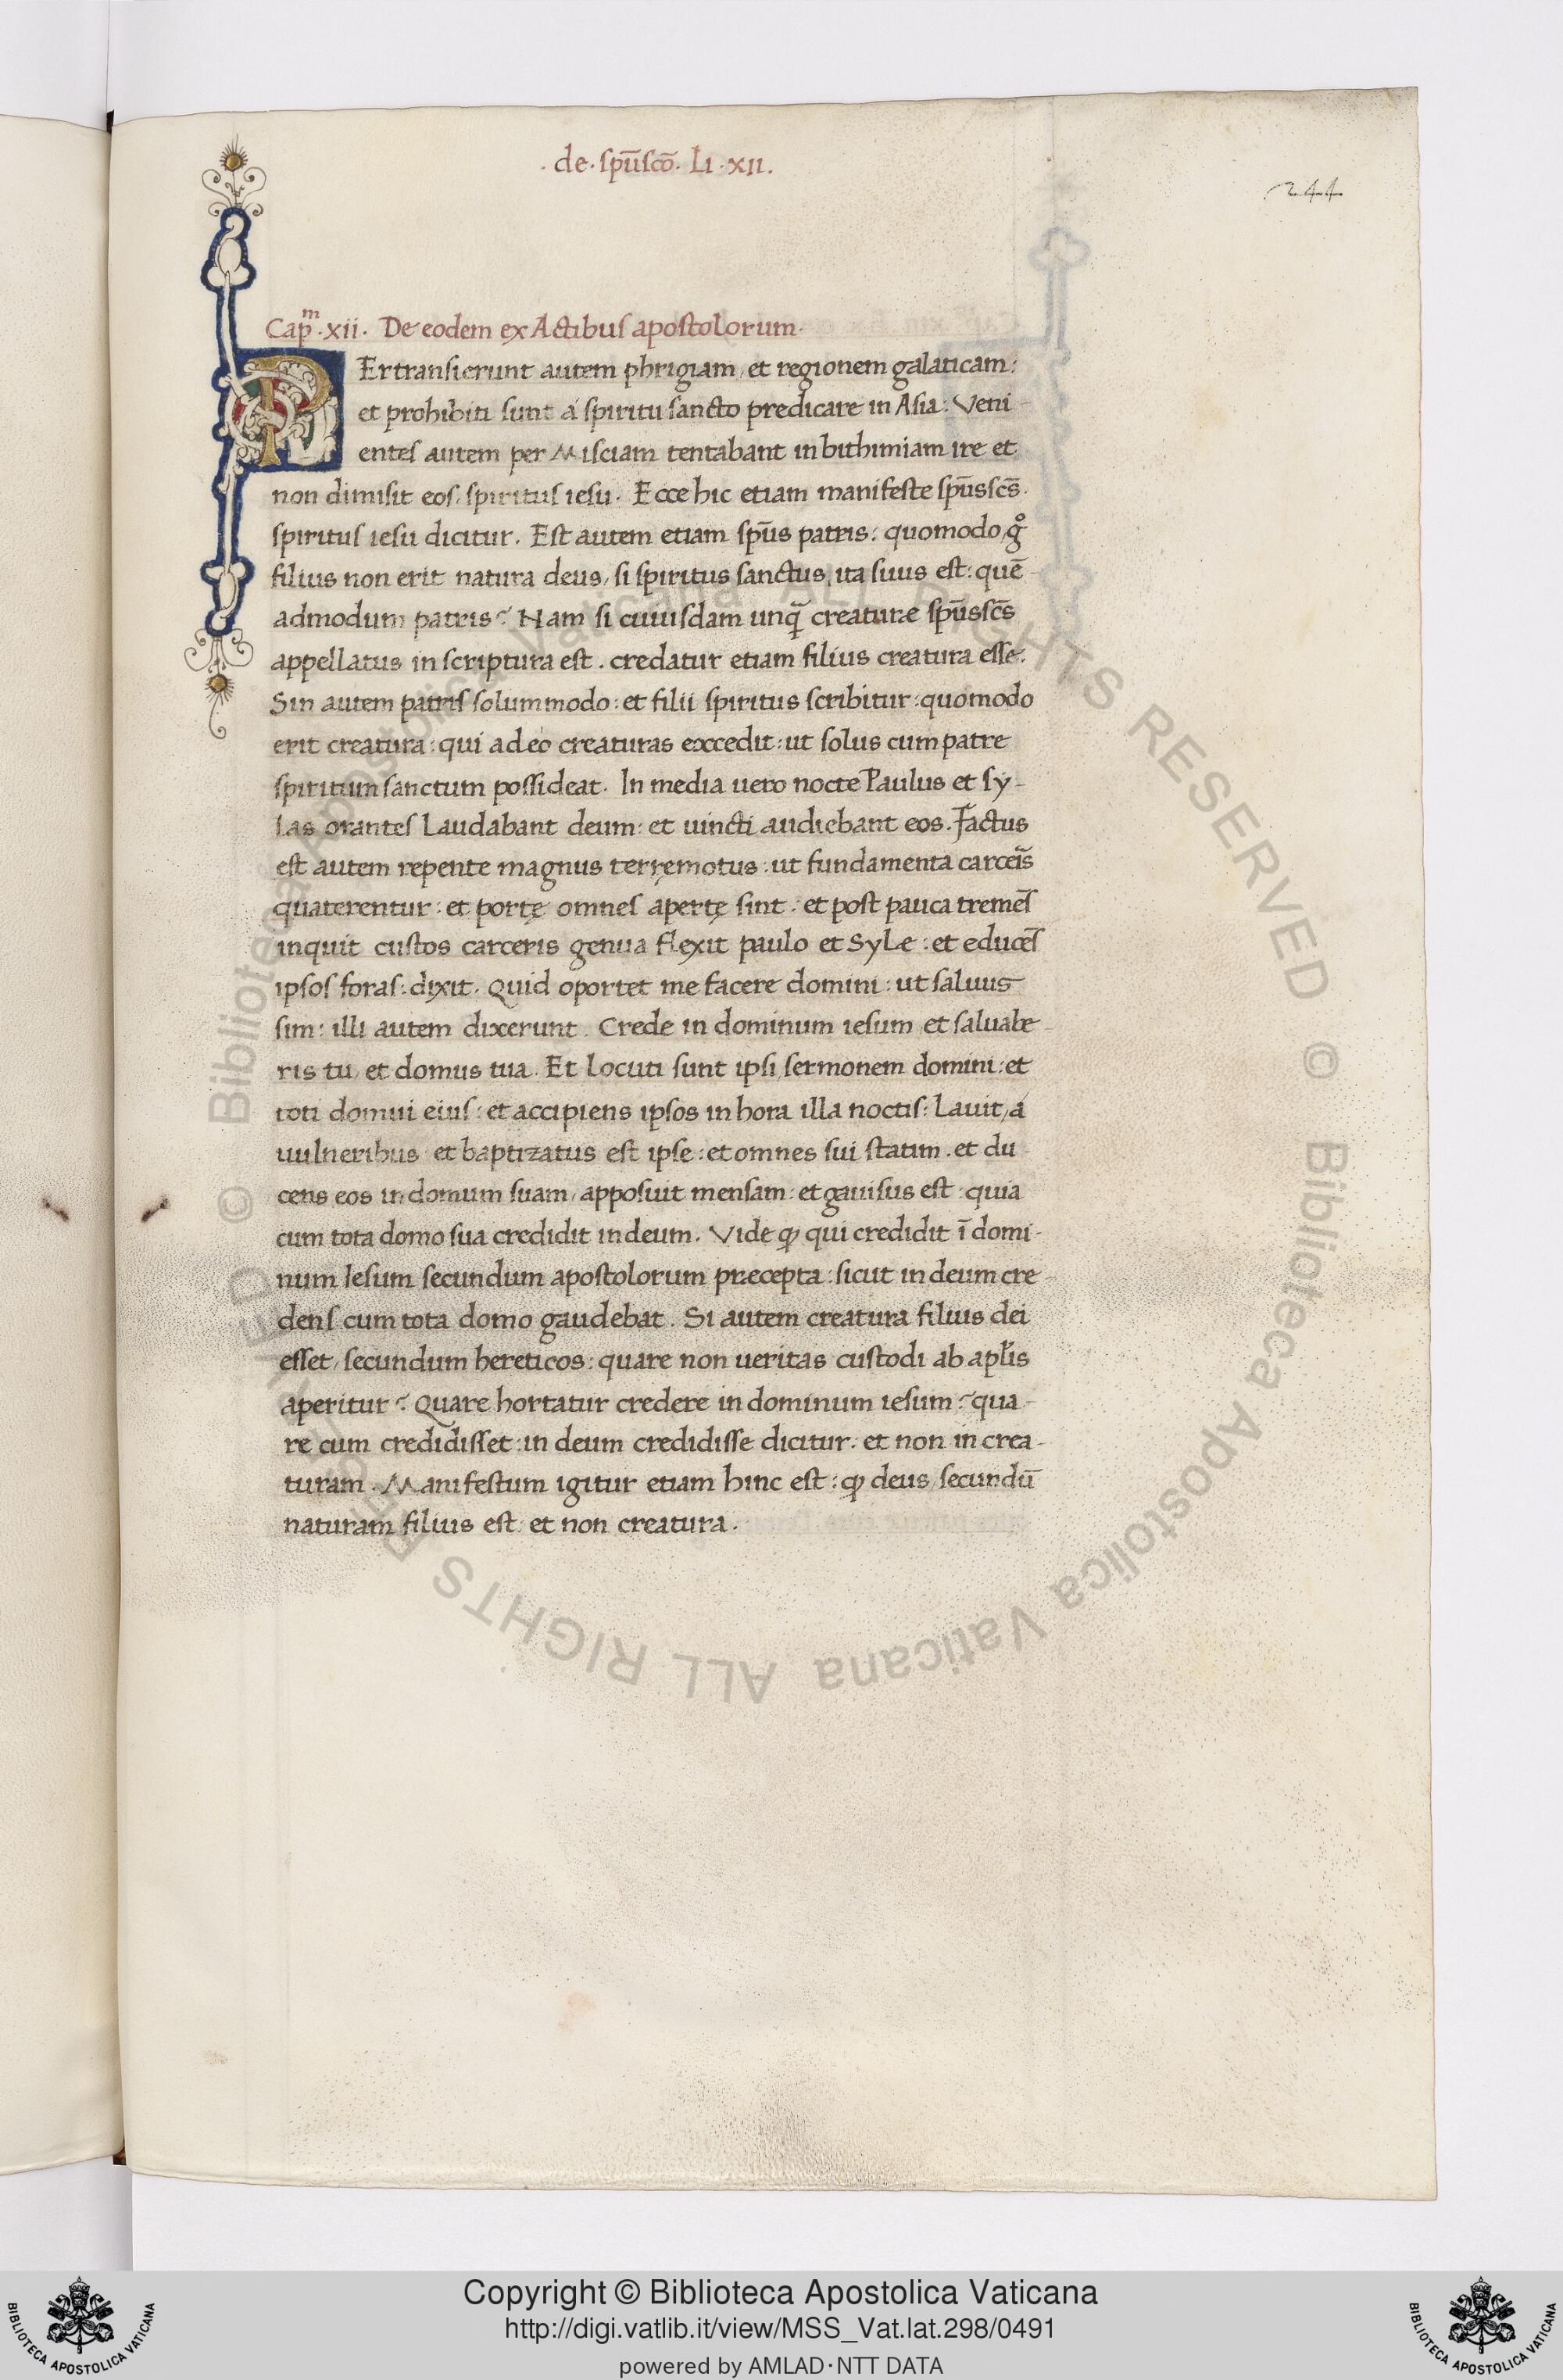 .de.spūscō. Li.xii.
244
Capᵐ.xii. De eodem ex Actibus apostolorum.
PErtransierunt autem phrigiam, et regionem galaticam:
et prohibiti sunt á spiritu sancto predicare in Asia: Veni-
entes autem per Misciam tentabant in bithimiam ire et
non dimisit eos: spiritus iesu. Ecce hic etiam manifeste spūs scs̄.
spiritus iesu dicitur. Est autem etiam spūs patris: quomodo, gͦ
filius non erit natura deus, si spiritus sanctus, ita suus est: quē-
admodum patris? Nam si cuiusdam unq̄ creaturæ spūs scs̄
appellatus in scriptura est. credatur etiam filius creatura esse.
Sin autem patris solummodo: et filii spiritus scribitur: quomodo
erit creatura: qui adeo creaturas exccedit: ut solus cum patre
spiritum sanctum possideat. In media uero nocte Paulus et sy-
las orantes Laudabant deum: et uincti audiebant eos. Factus
est autem repente magnus terręmotus: ut fundamenta carceīs
quaterentur: et portę omnes apertę sint: et post pauca tremēs
inquit custos carceris genua flexit paulo et Syle: et educēs
ipsos foras: dixit. Quid oportet me facere domini: ut saluus
sim: illi autem dixcerunt. Crede in dominum iesum et saluabe-
ris tu, et domus tua. Et Locuti sunt ipsi, sermonem domini: et
toti domui eius: et accipiens ipsos in hora illa noctis: Lauit, á
uulneribus et baptizatus est ipse: et omnes sui statim. et du-
cens eos in domum suam, apposuit mensam: et gauisus est: quia
cum tota domo sua credidit in deum. Vide ꝙ qui credidit ī domi-
num Iesum secundum apostolorum præcepta: sicut in deum cre-
dens cum tota domo gaudebat. Si autem creatura filius dei
esset, secundum hereticos: quare non ueritas custodi ab aplīs
aperitur? Quare hortatur credere in dominum iesum? qua-
re cum credidisset: in deum credidisse dicitur: et non in crea-
turam. Manifestum igitur etiam hinc est: ꝙ deus, secundū
naturam filius est: et non creatura.
© Biblioteca Apostolica Vaticana ALL RIGHTS RESERVED © Biblioteca Apostolica Vaticana ALL RIGHTS RESERVED
Copyright © Biblioteca Apostolica Vaticana
http://digi.vatlib.it/view/MSS_Vat.lat.298/0491
powered by AMLAD·NTT DATA
BIBLIOTECA APOSTOLICA VATICANA
BIBLIOTECA APOSTOLICA VATICANA